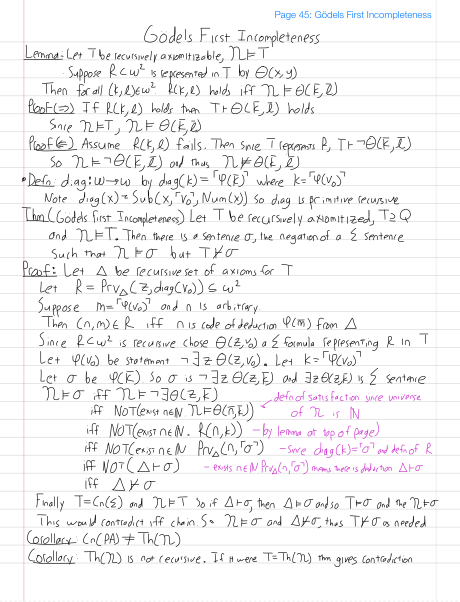 Page 45: Gödels First Incompleteness
Gödels First Incompleteness
Lemma: Let T be recursively axiomitizable, 𝔑⊨T
Suppose R⊂ω² is represented in T by Θ(x,y)
Then for all (k,l)∈ω² R(k,l) holds iff 𝔑⊨Θ(k̅,l̅)
Proof(⇒) If R(k,l) holds then T⊢Θ(k̅,l̅) holds
Since 𝔑⊨T, 𝔑⊨Θ(k̅,l̅)
Proof(⇐) Assume R(k,l) fails. Then since T represents R, T⊢¬Θ(k̅,l̅)
So 𝔑⊨¬Θ(k̅,l̅) and thus 𝔑⊭Θ(k̅,l̅)
•Defn: diag: ω→ω by diag(k)=⌜φ(k̅)⌝ where k=⌜φ(v₀)⌝
Note diag(x)=Sub(x,⌜v₀⌝,Num(x)) so diag is primitive recursive
Thm (Gödels first Incompleteness) Let T be reccursively axiomitized, T⊇Q
and 𝔑⊨T. Then there is a sentence σ, the negation of a Σ sentence
such that 𝔑⊨σ but T⊬σ
Proof: Let Δ be recursive set of axioms for T
Let R = Prv_Δ(z,diag(v₀)) ⊆ω²
Suppose m=⌜φ(v₀)⌝ and n is arbitrary
Then (n,m)∈R iff n is code of deduction φ(m̅) from Δ
Since R⊂ω² is recursive chose Θ(z,v₀) a Σ formula representing R in T
Let φ(v₀) be statement ¬∃zΘ(z,v₀). Let k=⌜φ(v₀)⌝
Let σ be φ(k̅). So σ is ¬∃zΘ(z,k̅) and ∃zΘ(z,k̅) is Σ sentence
𝔑⊨σ iff 𝔑⊨¬∃Θ(z,k̅)
defn of satisfaction since universe
iff NOT(exist n∈ℕ 𝔑⊨Θ(n̅,k̅)) of 𝔑 is ℕ
iff NOT(exist n∈ℕ. R(n,k)) - by lemma at top of page)
iff NOT(exist n∈ℕ Prv_Δ(n,⌜σ⌝) - Since diag(k)=⌜σ⌝ and defn of R
iff NOT(Δ⊢σ) - exists n∈ℕ Prv_Δ(n,⌜σ⌝) means there is deduction Δ⊢σ
iff Δ⊬σ
Finally T=Cn(Σ) and 𝔑⊨T so if Δ⊢σ, then Δ⊢σ and so T⊢σ and the 𝔑⊨σ
This would contradict iff chain. So 𝔑⊨σ and Δ⊬σ, thus T⊬σ as needed
Corollary: Cn(PA)≠Th(𝔑)
Corollary: Th(𝔑) is not recursive. If it were T=Th(𝔑) thm gives contradiction